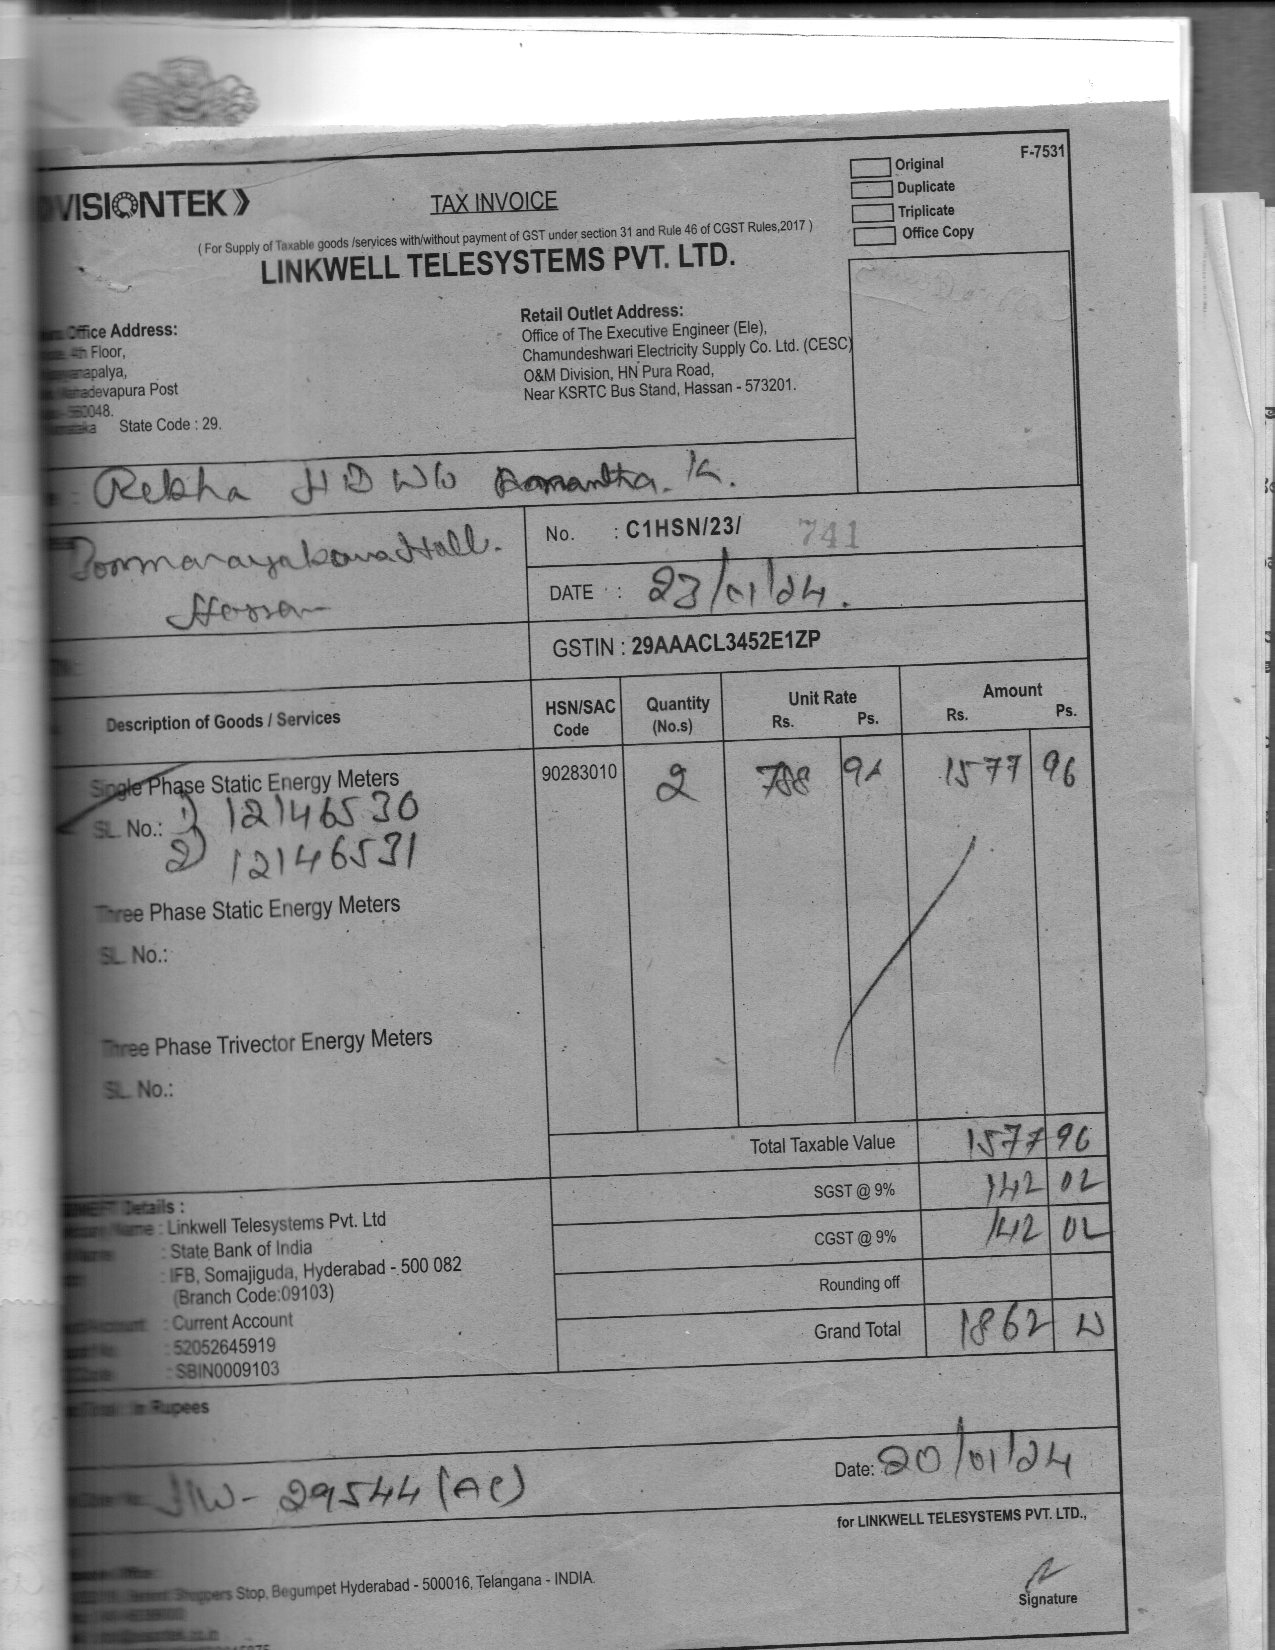 F-7531
Original
Duplicate
Triplicate
Office Copy
VISIONTEK
TAX INVOICE
( For Supply of Taxable goods /services with/without payment of GST under section 31 and Rule 46 of CGST Rules,2017 )
LINKWELL TELESYSTEMS PVT. LTD.
Office Address:
4th Floor,
Post
State Code : 29.
Retail Outlet Address:
Office of The Executive Engineer (Ele),
Chamundeshwari Electricity Supply Co. Ltd. (CESC)
O&M Division, HN Pura Road,
Near KSRTC Bus Stand, Hassan - 573201.
Rekha H D W/o K.
Hassan
No. : C1HSN/23/ 741
DATE : 23/01/24.
GSTIN : 29AAACL3452E1ZP
Description of Goods / Services HSN/SAC Code Quantity (No.s) Unit Rate Rs. Ps. Amount Rs. Ps.
Single Phase Static Energy Meters 90283010 2 788 1577 96
SL. No.: 1) 12146530
2) 12146531
Three Phase Static Energy Meters
SL. No.:
Three Phase Trivector Energy Meters
SL. No.:
Total Taxable Value 1577 96
SGST @ 9% 142 02
CGST @ 9% 142 02
Rounding off
Grand Total 1862
Details :
Name : Linkwell Telesystems Pvt. Ltd
: State Bank of India
: IFB, Somajiguda, Hyderabad - 500 082
(Branch Code:09103)
: Current Account
: 52052645919
: SBIN0009103
in Rupees
29544 (AC)
Date: 20/01/24
for LINKWELL TELESYSTEMS PVT. LTD.,
Stop, Begumpet Hyderabad - 500016, Telangana - INDIA.
Signature